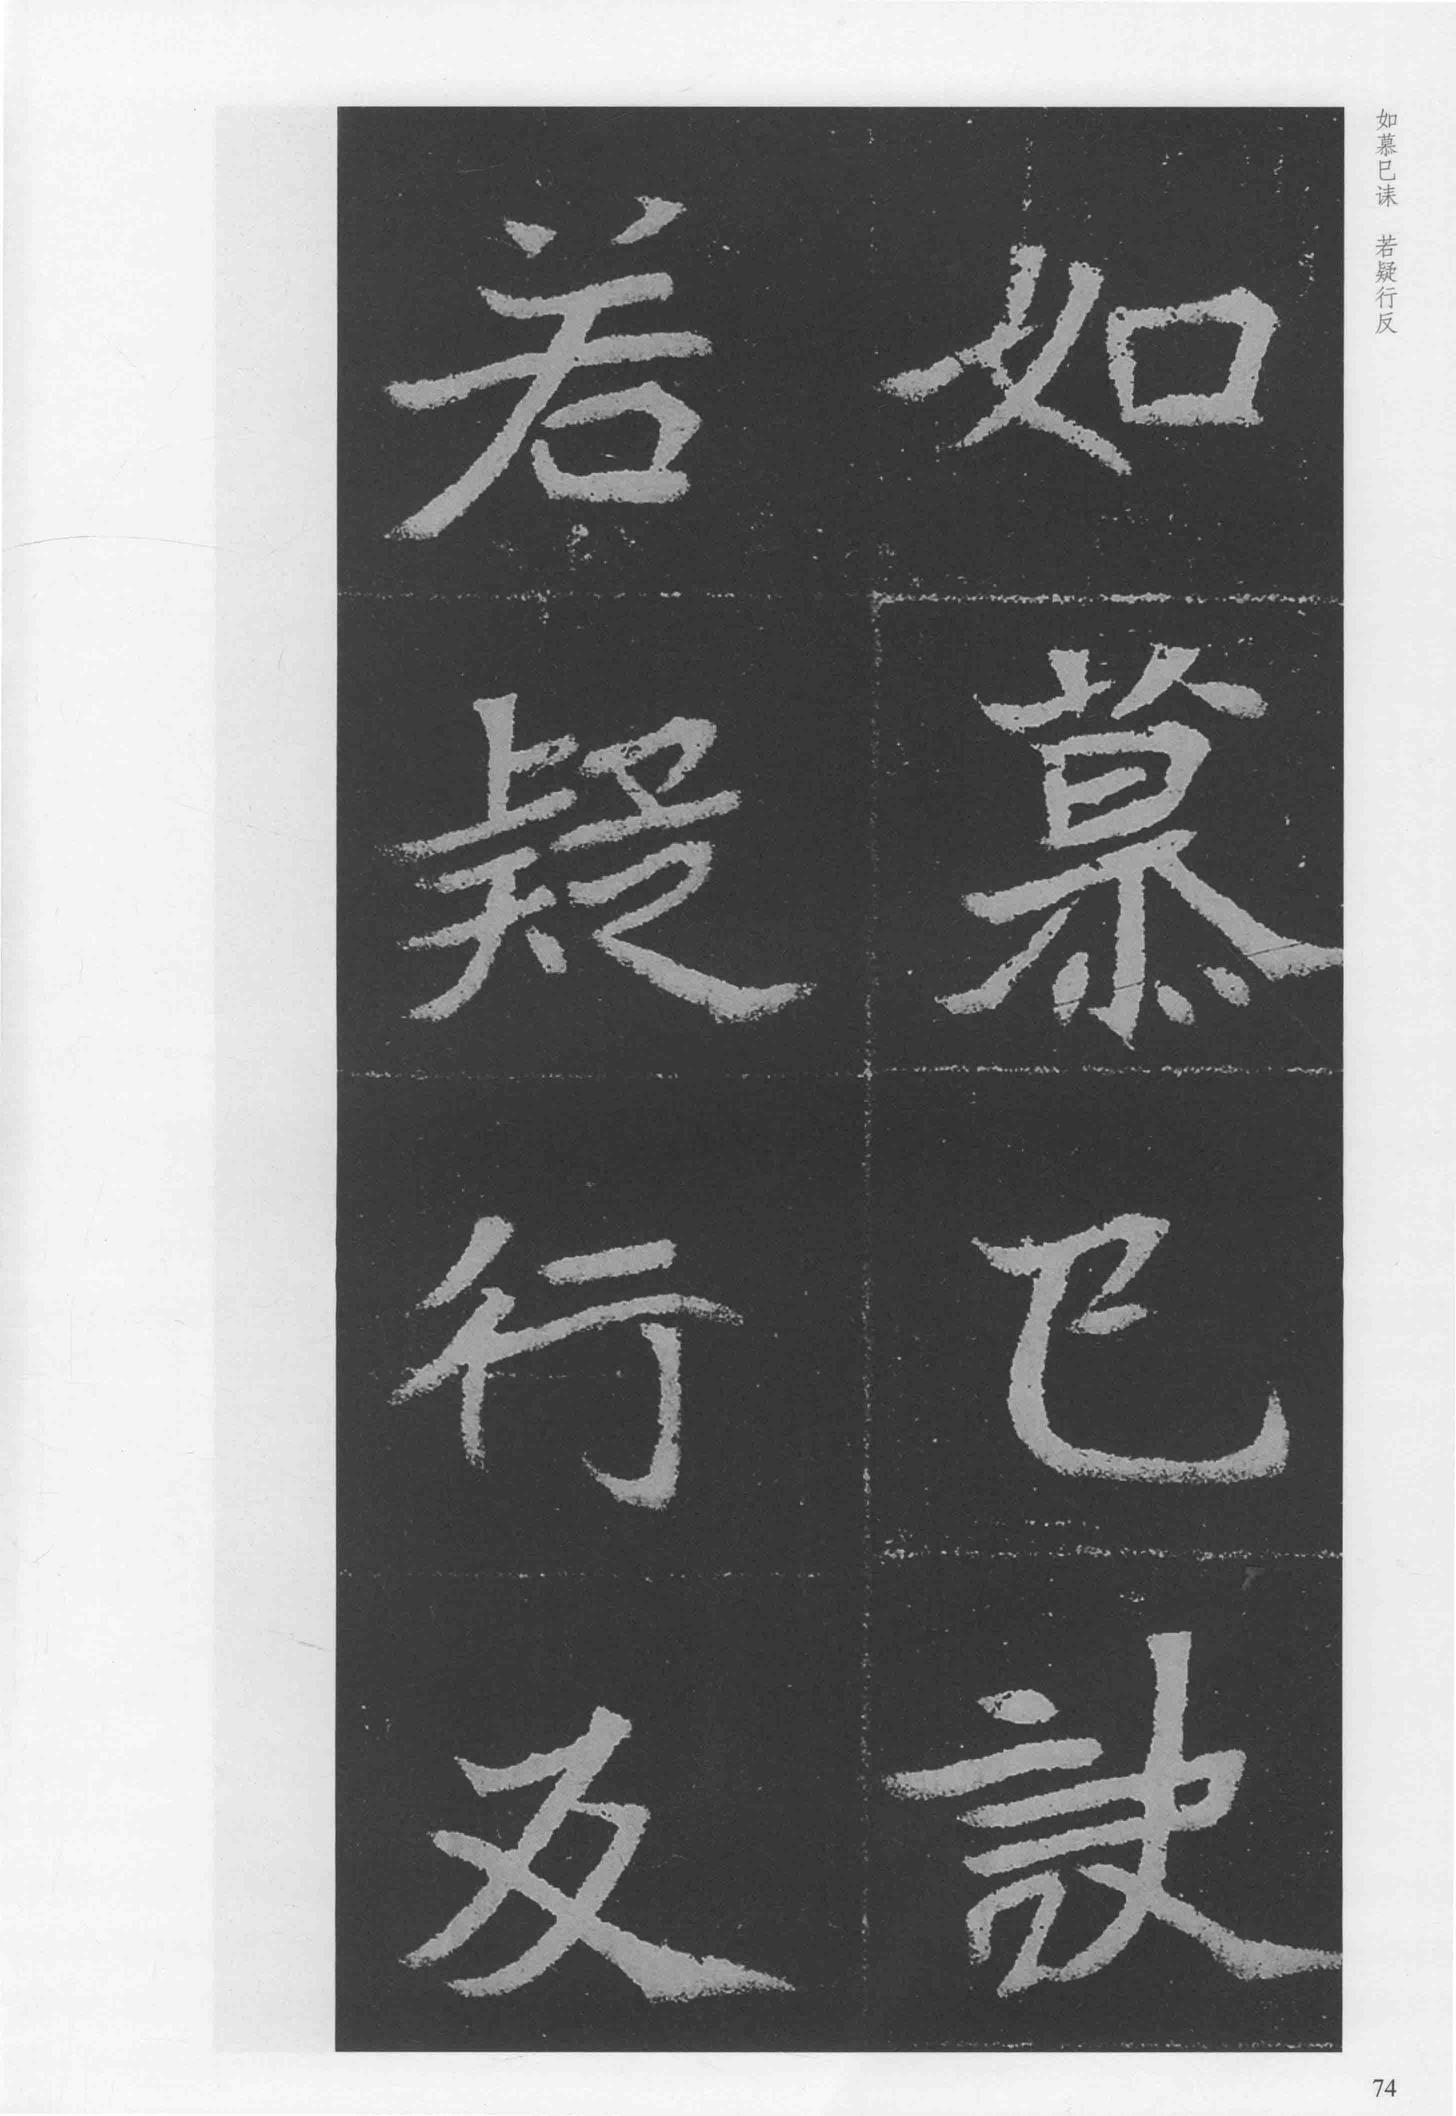 如慕巳诔 若疑行反
如慕巳訣
若疑行反
74